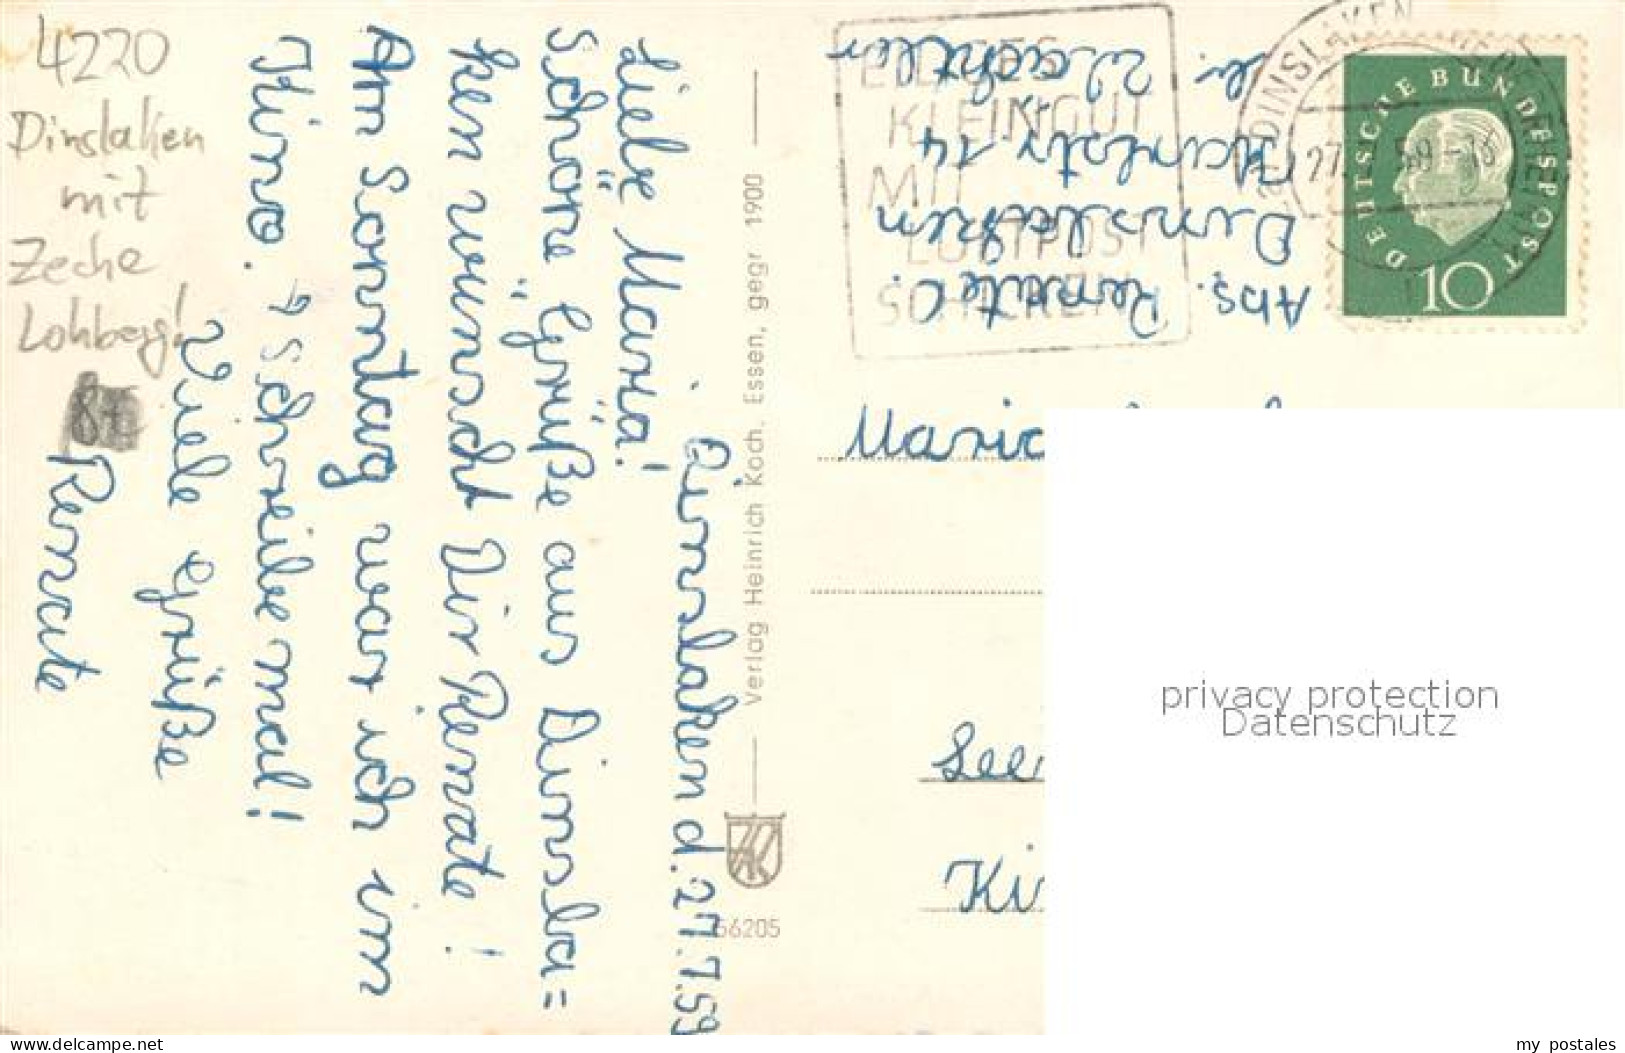 4220
Dinslaken
mit
Zeche
Lohberg!
Dinslaken d. 27.7.59
Liebe Maria!
Schöne Grüße aus Dinsla=
ken wünscht Dir Renate!
Am Sonntag war ich im
Kino. Schreibe mal!
Viele Grüße
Renate
Verlag Heinrich Koch, Essen, gegr 1900
56205
EILIGES
KLEINGUT
MIT
LUFTPOST
SCHICKEN
DINSLAKEN
DEUTSCHE BUNDESPOST
10
Abs. Renate O.
Dinslaken
Karlstr. 14
b. Wachtler
Maria
Kir
privacy protection
Datenschutz
www.delcampe.net
my_postales